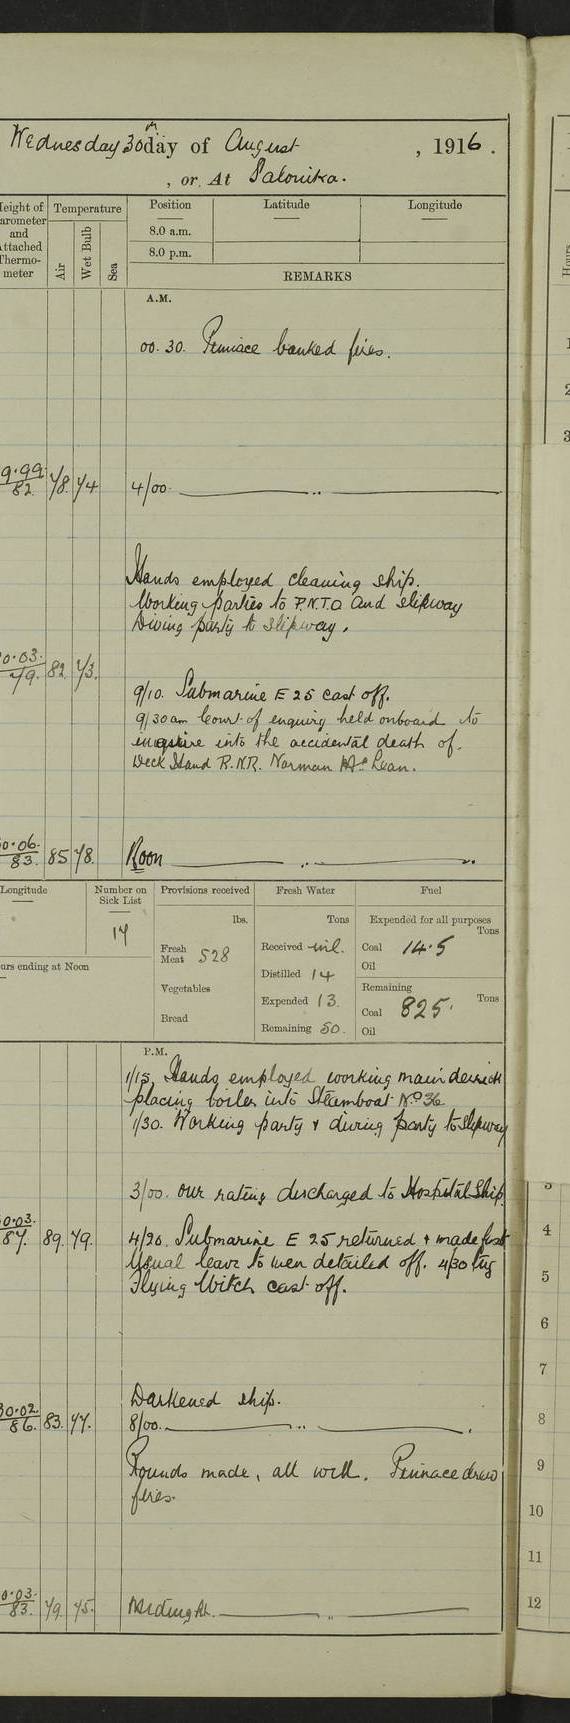 Wednesday 30th day of August, 1916.
, or At Salonika.
Height of Barometer and Attached Thermometer
Temperature
Air
Wet Bulb
Sea
Position Latitude Longitude
8.0 a.m.
8.0 p.m.
REMARKS
A.M.
00.30. Pinnace banked fires.
9.99 / 82. 78. 74
4/00
Hands employed cleaning ship.
Working parties to P.N.T.O and slipway
Diving party to slipway.
0.03. / 79. 82 73.
9/10. Submarine E 25 cast off.
9/30am Court of enquiry held onboard to
enquire into the accidental death of
Deck Hand R.N.R. Norman McLean.
0.06. / 83. 85 78.
Noon
Longitude
Number on Sick List
Provisions received
Fresh Water
Fuel
14
lbs.
Tons
Expended for all purposes
Tons
Fresh Meat 528
Received nil.
Coal 14.5
Distilled 14
Oil
urs ending at Noon
Vegetables
Expended 13.
Remaining
Tons
Coal 825.
Bread
Remaining 50.
Oil
P.M.
1/15. Hands employed working main derrick
placing boiler into Steamboat No 36
1/30. Working party & diving party to slipway
3/00. our rating discharged to Hospital Ship.
0.03. / 87. 89. 79.
4/20. Submarine E 25 returned & made fast
Usual leave to men detailed off. 4/30 tug
Flying Witch cast off.
Darkened ship.
30.02. / 86. 83. 77.
8/00.
Rounds made, all well. Pinnace drew
fires.
0.03. / 83. 79. 75.
Midnight.
Hours
1
2
3
3
4
5
6
7
8
9
10
11
12